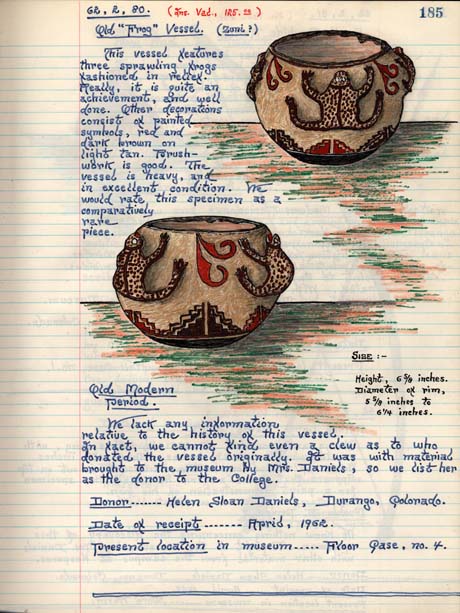 62. 2. 80. (Ins. Vad., 125.00) 185
Old "Frog" Vessel. (Zuni?)
This vessel features
three sprawling frogs
fashioned in relief.
Really, it is quite an
achievement, and well
done. Other decorations
consist of painted
symbols, red and
dark brown on
light tan. Brush-
work is good. The
vessel is heavy, and
in excellent condition. We
would rate this specimen as a
comparatively
rare
piece.
Size :-
Height, 6 5/8 inches.
Diameter of rim,
5 5/8 inches to
6 1/4 inches.
Old Modern
Period.
We lack any information
relative to the history of this vessel.
In fact, we cannot find even a clew as to who
donated the vessel originally. It was with material
brought to the museum by Mrs. Daniels, so we list her
as the donor to the College.
Donor ------- Helen Sloan Daniels, Durango, Colorado.
Date of receipt ------- April, 1962.
Present location in museum ----- Floor Case, no. 4.